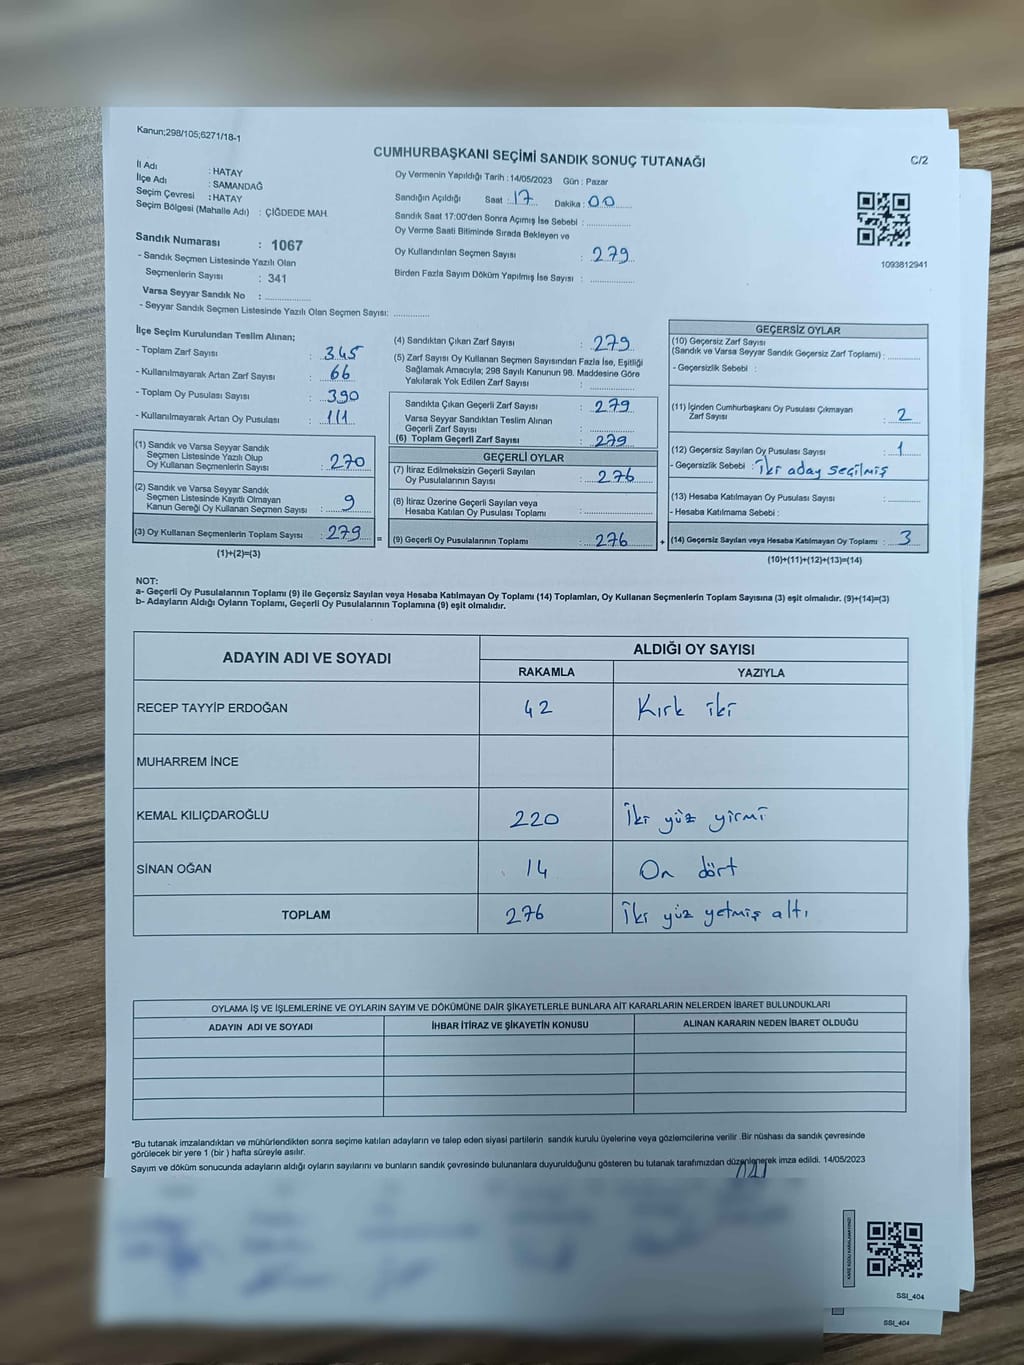 Kanun;298/105;6271/18-1
CUMHURBAŞKANI SEÇİMİ SANDIK SONUÇ TUTANAĞI
C/2
İl Adı : HATAY
İlçe Adı : SAMANDAĞ
Seçim Çevresi : HATAY
Seçim Bölgesi (Mahalle Adı) : ÇİĞDEDE MAH.
Sandık Numarası : 1067
- Sandık Seçmen Listesinde Yazılı Olan
Seçmenlerin Sayısı : 341
Varsa Seyyar Sandık No : ..............
- Seyyar Sandık Seçmen Listesinde Yazılı Olan Seçmen Sayısı: ..............
Oy Vermenin Yapıldığı Tarih : 14/05/2023 Gün : Pazar
Sandığın Açıldığı Saat : 17 Dakika : 00
Sandık Saat 17:00'den Sonra Açımış İse Sebebi : ..............
Oy Verme Saati Bitiminde Sırada Bekleyen ve
Oy Kullandırılan Seçmen Sayısı : 279
Birden Fazla Sayım Döküm Yapılmış İse Sayısı : ..............
1093812941
İlçe Seçim Kurulundan Teslim Alınan;
- Toplam Zarf Sayısı : 345
- Kullanılmayarak Artan Zarf Sayısı : 66
- Toplam Oy Pusulası Sayısı : 390
- Kullanılmayarak Artan Oy Pusulası : 111
(1) Sandık ve Varsa Seyyar Sandık
Seçmen Listesinde Yazılı Olup
Oy Kullanan Seçmenlerin Sayısı : 270
(2) Sandık ve Varsa Seyyar Sandık
Seçmen Listesinde Kayıtlı Olmayan
Kanun Gereği Oy Kullanan Seçmen Sayısı : 9
(3) Oy Kullanan Seçmenlerin Toplam Sayısı : 279 =
(1)+(2)=(3)
(4) Sandıktan Çıkan Zarf Sayısı : 279
(5) Zarf Sayısı Oy Kullanan Seçmen Sayısından Fazla İse, Eşitliği
Sağlamak Amacıyla; 298 Sayılı Kanunun 98. Maddesine Göre
Yakılarak Yok Edilen Zarf Sayısı : ..............
Sandıkta Çıkan Geçerli Zarf Sayısı : 279
Varsa Seyyar Sandıktan Teslim Alınan
Geçerli Zarf Sayısı : ..............
(6) Toplam Geçerli Zarf Sayısı : 279
GEÇERLİ OYLAR
(7) İtiraz Edilmeksizin Geçerli Sayılan
Oy Pusulalarının Sayısı : 276
(8) İtiraz Üzerine Geçerli Sayılan veya
Hesaba Katılan Oy Pusulası Toplamı : ..............
(9) Geçerli Oy Pusulalarının Toplamı : 276 +
GEÇERSİZ OYLAR
(10) Geçersiz Zarf Sayısı
(Sandık ve Varsa Seyyar Sandık Geçersiz Zarf Toplamı) : ..............
- Geçersizlik Sebebi :
(11) İçinden Cumhurbaşkanı Oy Pusulası Çıkmayan
Zarf Sayısı : 2
(12) Geçersiz Sayılan Oy Pusulası Sayısı : 1
- Geçersizlik Sebebi : İki aday seçilmiş
(13) Hesaba Katılmayan Oy Pusulası Sayısı : ..............
- Hesaba Katılmama Sebebi :
(14) Geçersiz Sayılan veya Hesaba Katılmayan Oy Toplamı : 3
(10)+(11)+(12)+(13)=(14)
NOT:
a- Geçerli Oy Pusulasının Toplamı (9) ile Geçersiz Sayılan veya Hesaba Katılmayan Oy Toplamı (14) Toplamları, Oy Kullanan Seçmenlerin Toplam Sayısına (3) eşit olmalıdır. (9)+(14)=(3)
b- Adayların Aldığı Oyların Toplamı, Geçerli Oy Pusulalarının Toplamına (9) eşit olmalıdır.
ADAYIN ADI VE SOYADI
ALDIĞI OY SAYISI
RAKAMLA YAZIYLA
RECEP TAYYİP ERDOĞAN 42 Kırk iki
MUHARREM İNCE
KEMAL KILIÇDAROĞLU 220 İki yüz yirmi
SİNAN OĞAN 14 On dört
TOPLAM 276 İki yüz yetmiş altı
OYLAMA İŞ VE İŞLEMLERİNE VE OYLARIN SAYIM VE DÖKÜMÜNE DAİR ŞİKAYETLERLE BUNLARA AİT KARARLARIN NELERDEN İBARET BULUNDUKLARI
ADAYIN ADI VE SOYADI İHBAR İTİRAZ VE ŞİKAYETİN KONUSU ALINAN KARARIN NEDEN İBARET OLDUĞU
*Bu tutanak imzalandıktan ve mühürlendikten sonra seçime katılan adayların ve talep eden siyasi partilerin sandık kurulu üyelerine veya gözlemcilerine verilir .Bir nüshası da sandık çevresinde
görülecek bir yere 1 (bir ) hafta süreyle asılır.
Sayım ve döküm sonucunda adayların aldığı oyların sayılarını ve bunların sandık çevresinde bulunanlara duyurulduğunu gösteren bu tutanak tarafımızdan düzenlenerek imza edildi. 14/05/2023
KARE KODU KARALAMAYINIZ!
SSI_404
SSI_404